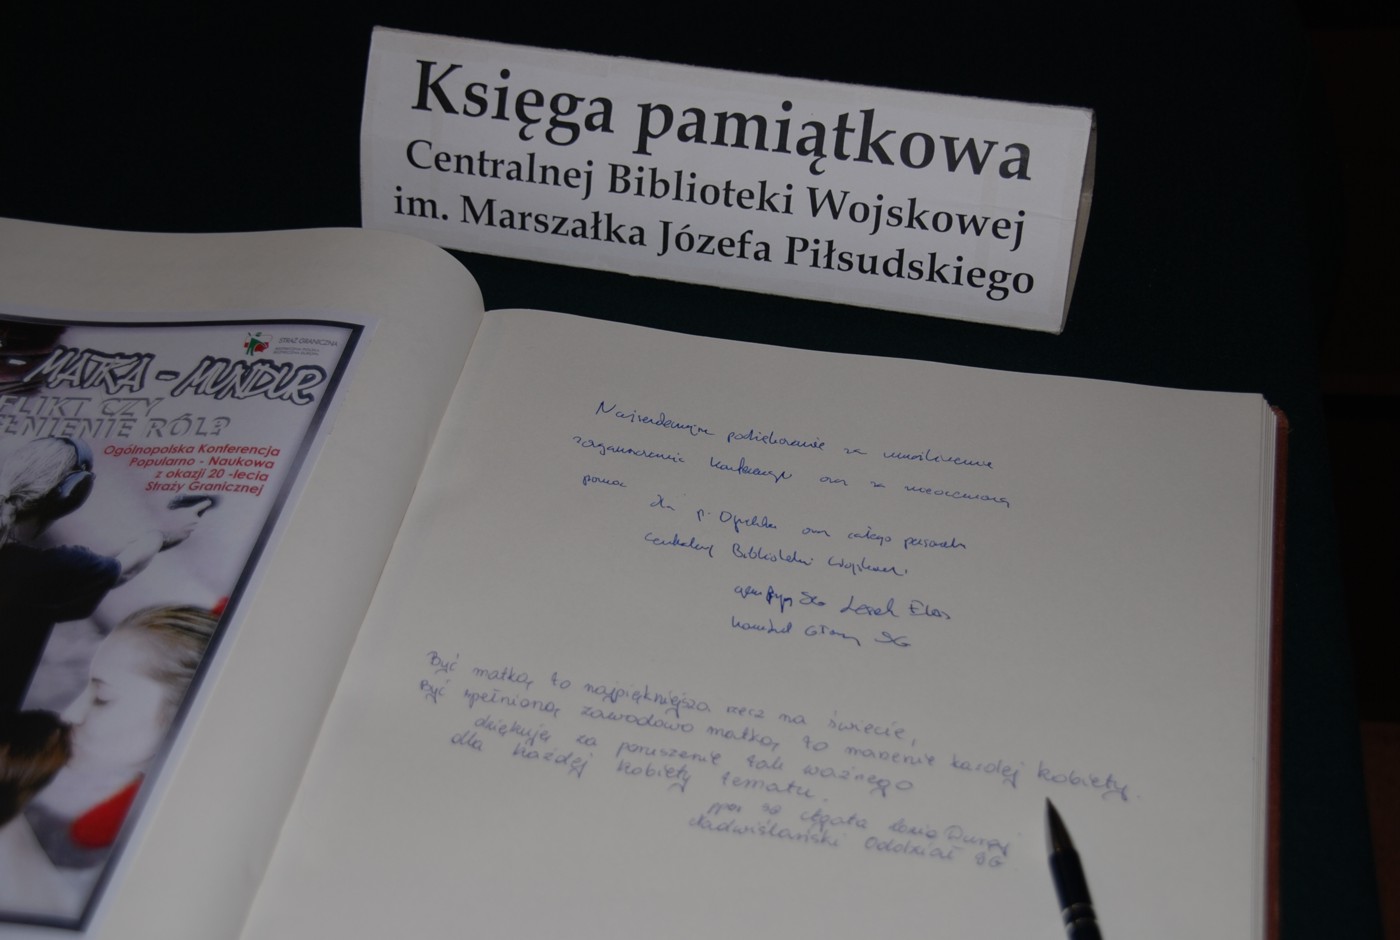 Księga pamiątkowa
Centralnej Biblioteki Wojskowej
im. Marszałka Józefa Piłsudskiego
STRAŻ GRANICZNA
MATKA - MUNDUR
FLIKT CZY
EŁNIENIE RÓL?
Ogólnopolska Konferencja
Popularno - Naukowa
z okazji 20 -lecia
Straży Granicznej
Najserdeczniejsze podziękowanie za umożliwienie
zorganizowania konferencji oraz za nieocenioną
pomoc
dla p. oraz całego personelu
Centralnej Biblioteki Wojskowej
SG Leszek Elas
Komendant Główny SG
Być matką to najpiękniejsza rzecz na świecie,
Być spełnioną zawodowo matką to marzenie każdej kobiety.
dziękuję za poruszenie tak ważnego
dla każdej kobiety tematu.
SG Agata
Nadwiślański Oddział SG